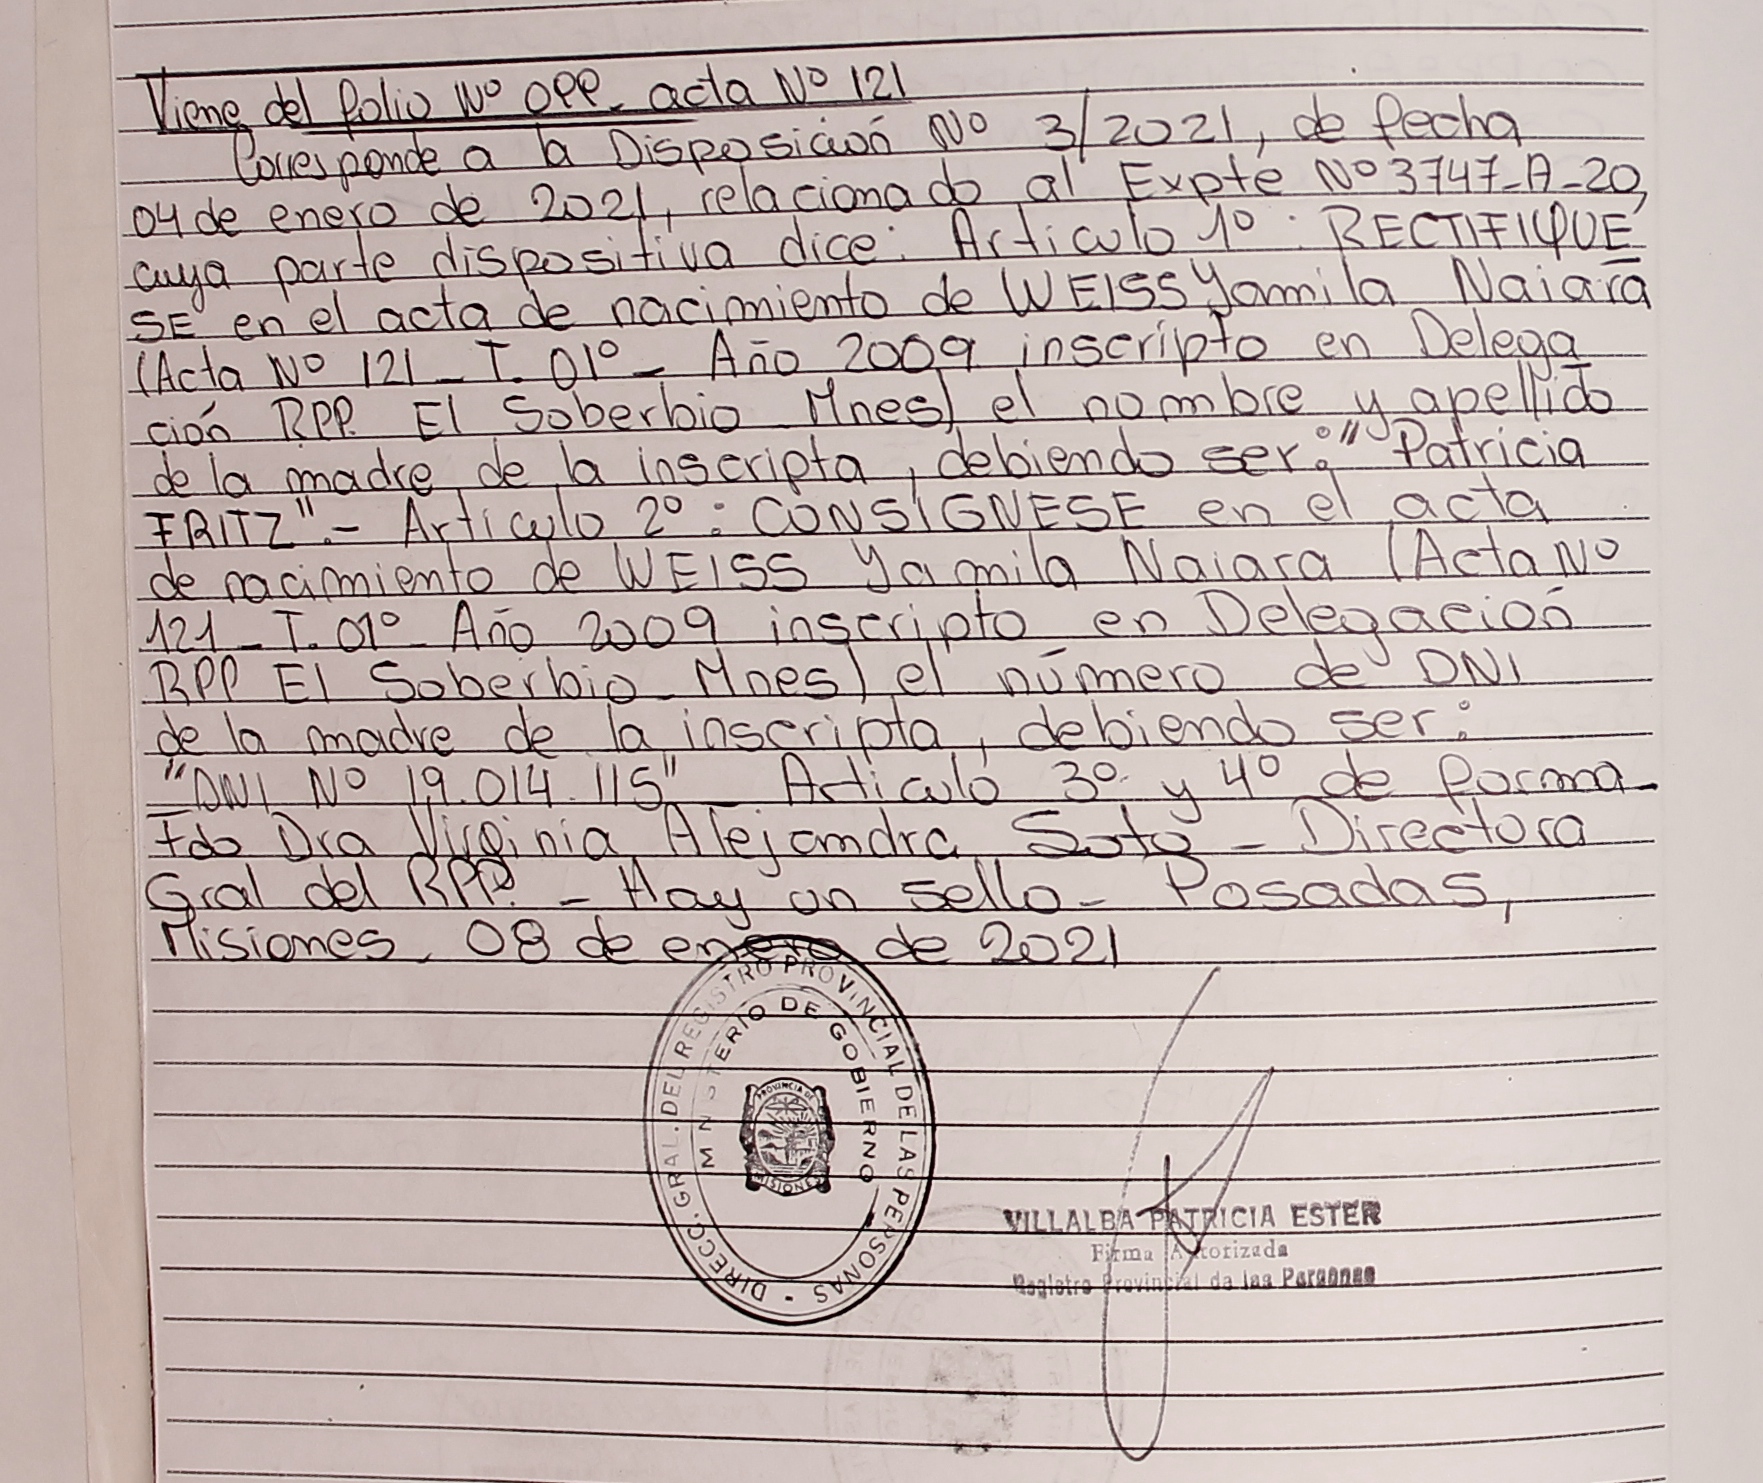 Viene del folio Nº OPP- acta Nº 121
Corresponde a la Disposición Nº 3/2021, de fecha
04 de enero de 2021, relacionado al Expte Nº 3747-A-20,
cuya parte dispositiva dice: Artículo 1º: RECTIFIQUE
SE en el acta de nacimiento de WEISS Yamila Naiara
(Acta Nº 121 - T. 01º - Año 2009 inscripto en Delega
ción RPP. El Soberbio Mnes) el nombre y apellido
de la madre de la inscripta, debiendo ser: "Patricia
FRITZ".- Artículo 2º: CONSIGNESE en el acta
de nacimiento de WEISS Yamila Naiara (Acta Nº
121 - T. 01º Año 2009 inscripto en Delegación
RPP El Soberbio - Mnes) el número de DNI
de la madre de la inscripta, debiendo ser:
"DNI Nº 19.014.115" Artículo 3º y 4º de forma-
Fdo Dra Virginia Alejandra Soto - Directora
Gral del RPP. - Hay un sello - Posadas,
Misiones, 08 de enero de 2021
DIRECC. GRAL. DEL REGISTRO PROVINCIAL DE LAS PERSONAS -
MINISTERIO DE GOBIERNO
PROVINCIA DE
MISIONES
VILLALBA PATRICIA ESTER
Firma Autorizada
Registro Provincial de las Personas